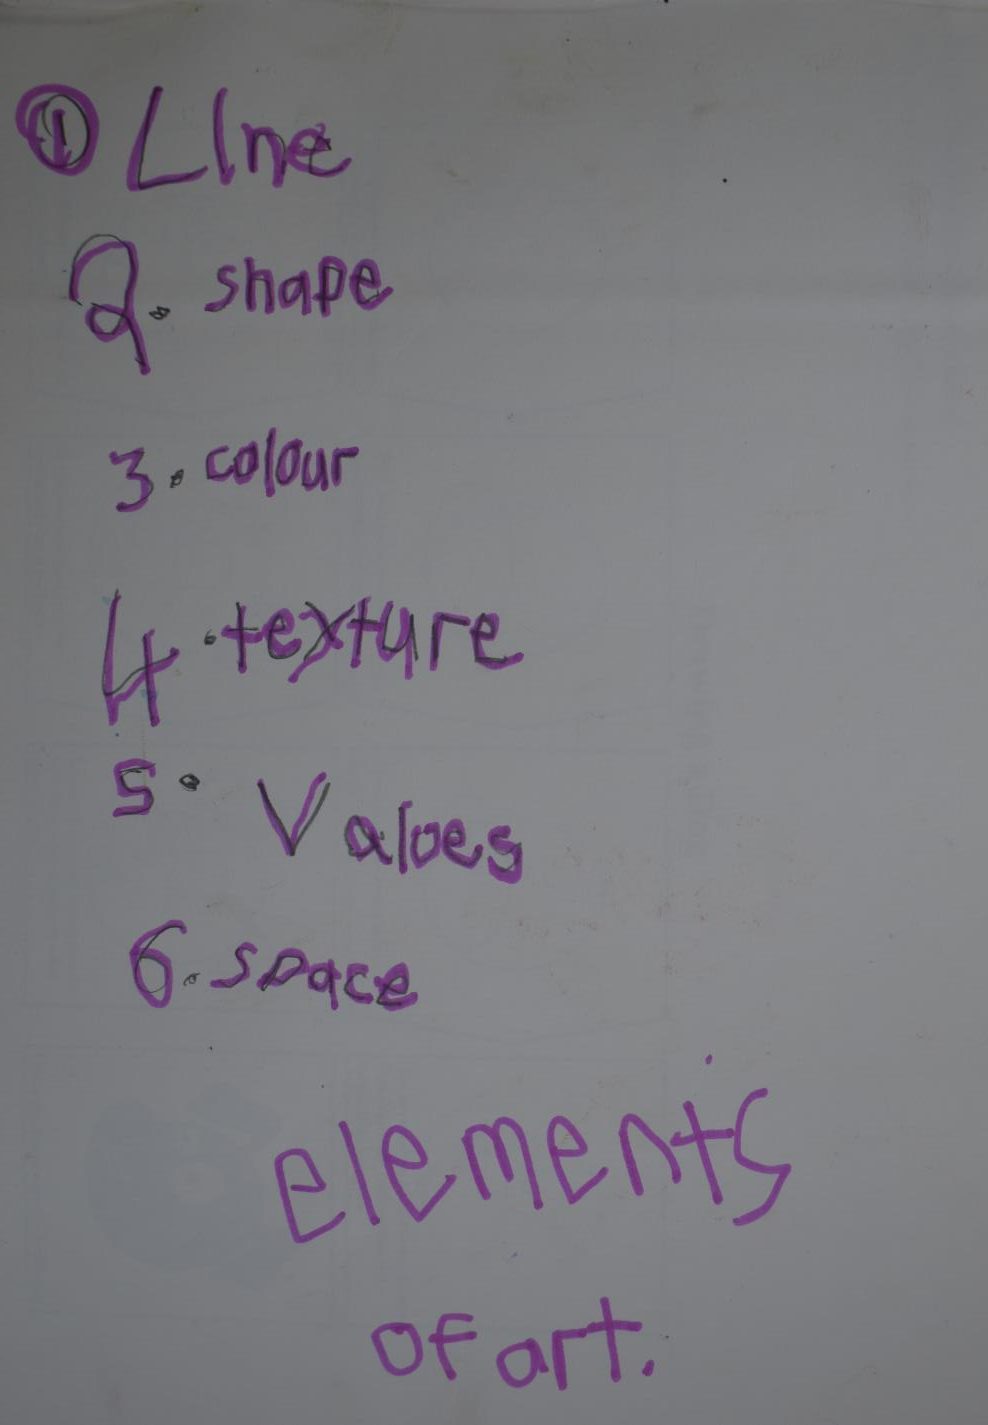 1 LIne
2. shape
3. colour
4. texture
5. Valoes
6. space
elements
of art.